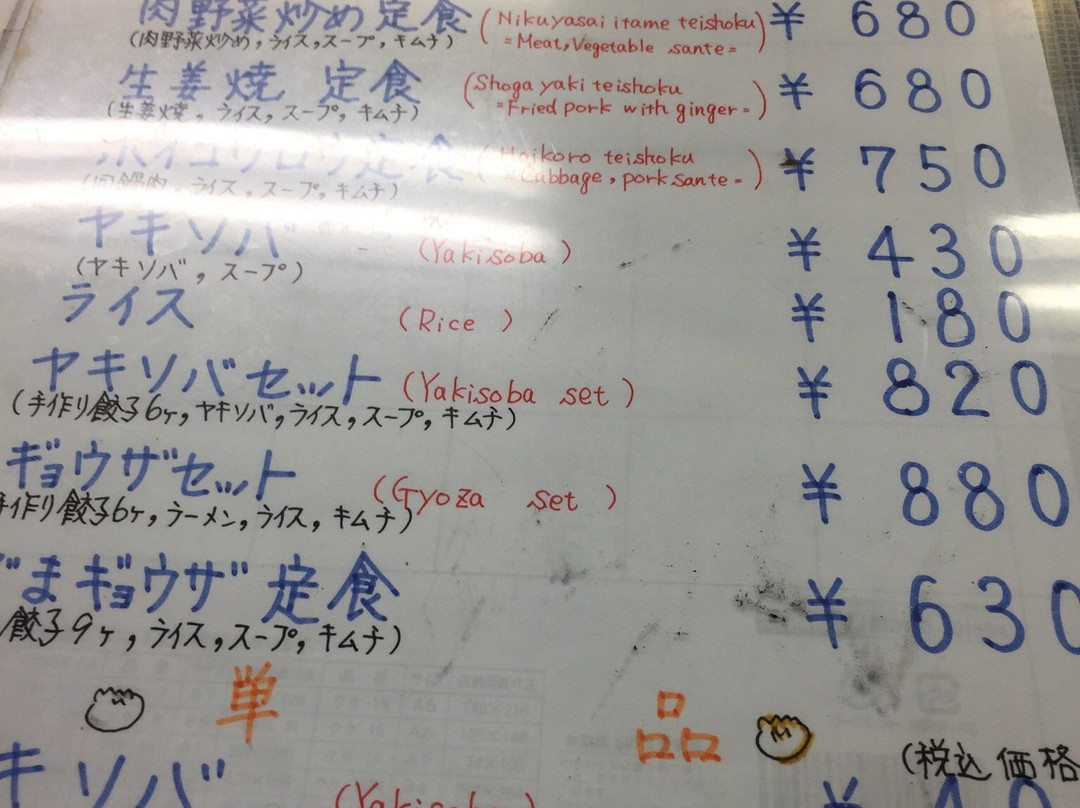 肉野菜炒め定食 (Nikuyasai itame teishoku) ¥ 680
(肉野菜炒め,ライス,スープ,キムチ) =Meat,Vegetable sante=
生姜焼 定食 (Shoga yaki teishoku ¥ 680
(生姜焼,ライス,スープ,キムチ) =Fried pork with ginger=)
ホイコウロウ定食 (Hoikoro teishoku ¥ 750
(回鍋肉,ライス,スープ,キムチ) =Cabbage,pork sante=)
ヤキソバ (Yakisoba) ¥ 430
(ヤキソバ,スープ)
ライス (Rice) ¥ 180
ヤキソバセット (Yakisoba set) ¥ 820
(手作り餃子6ヶ,ヤキソバ,ライス,スープ,キムチ)
ギョウザセット (Gyoza set) ¥ 880
手作り餃子6ヶ,ラーメン,ライス,キムチ)
まギョウザ定食 ¥ 630
餃子9ヶ,ライス,スープ,キムチ)
単 品
(税込価格
キソバ